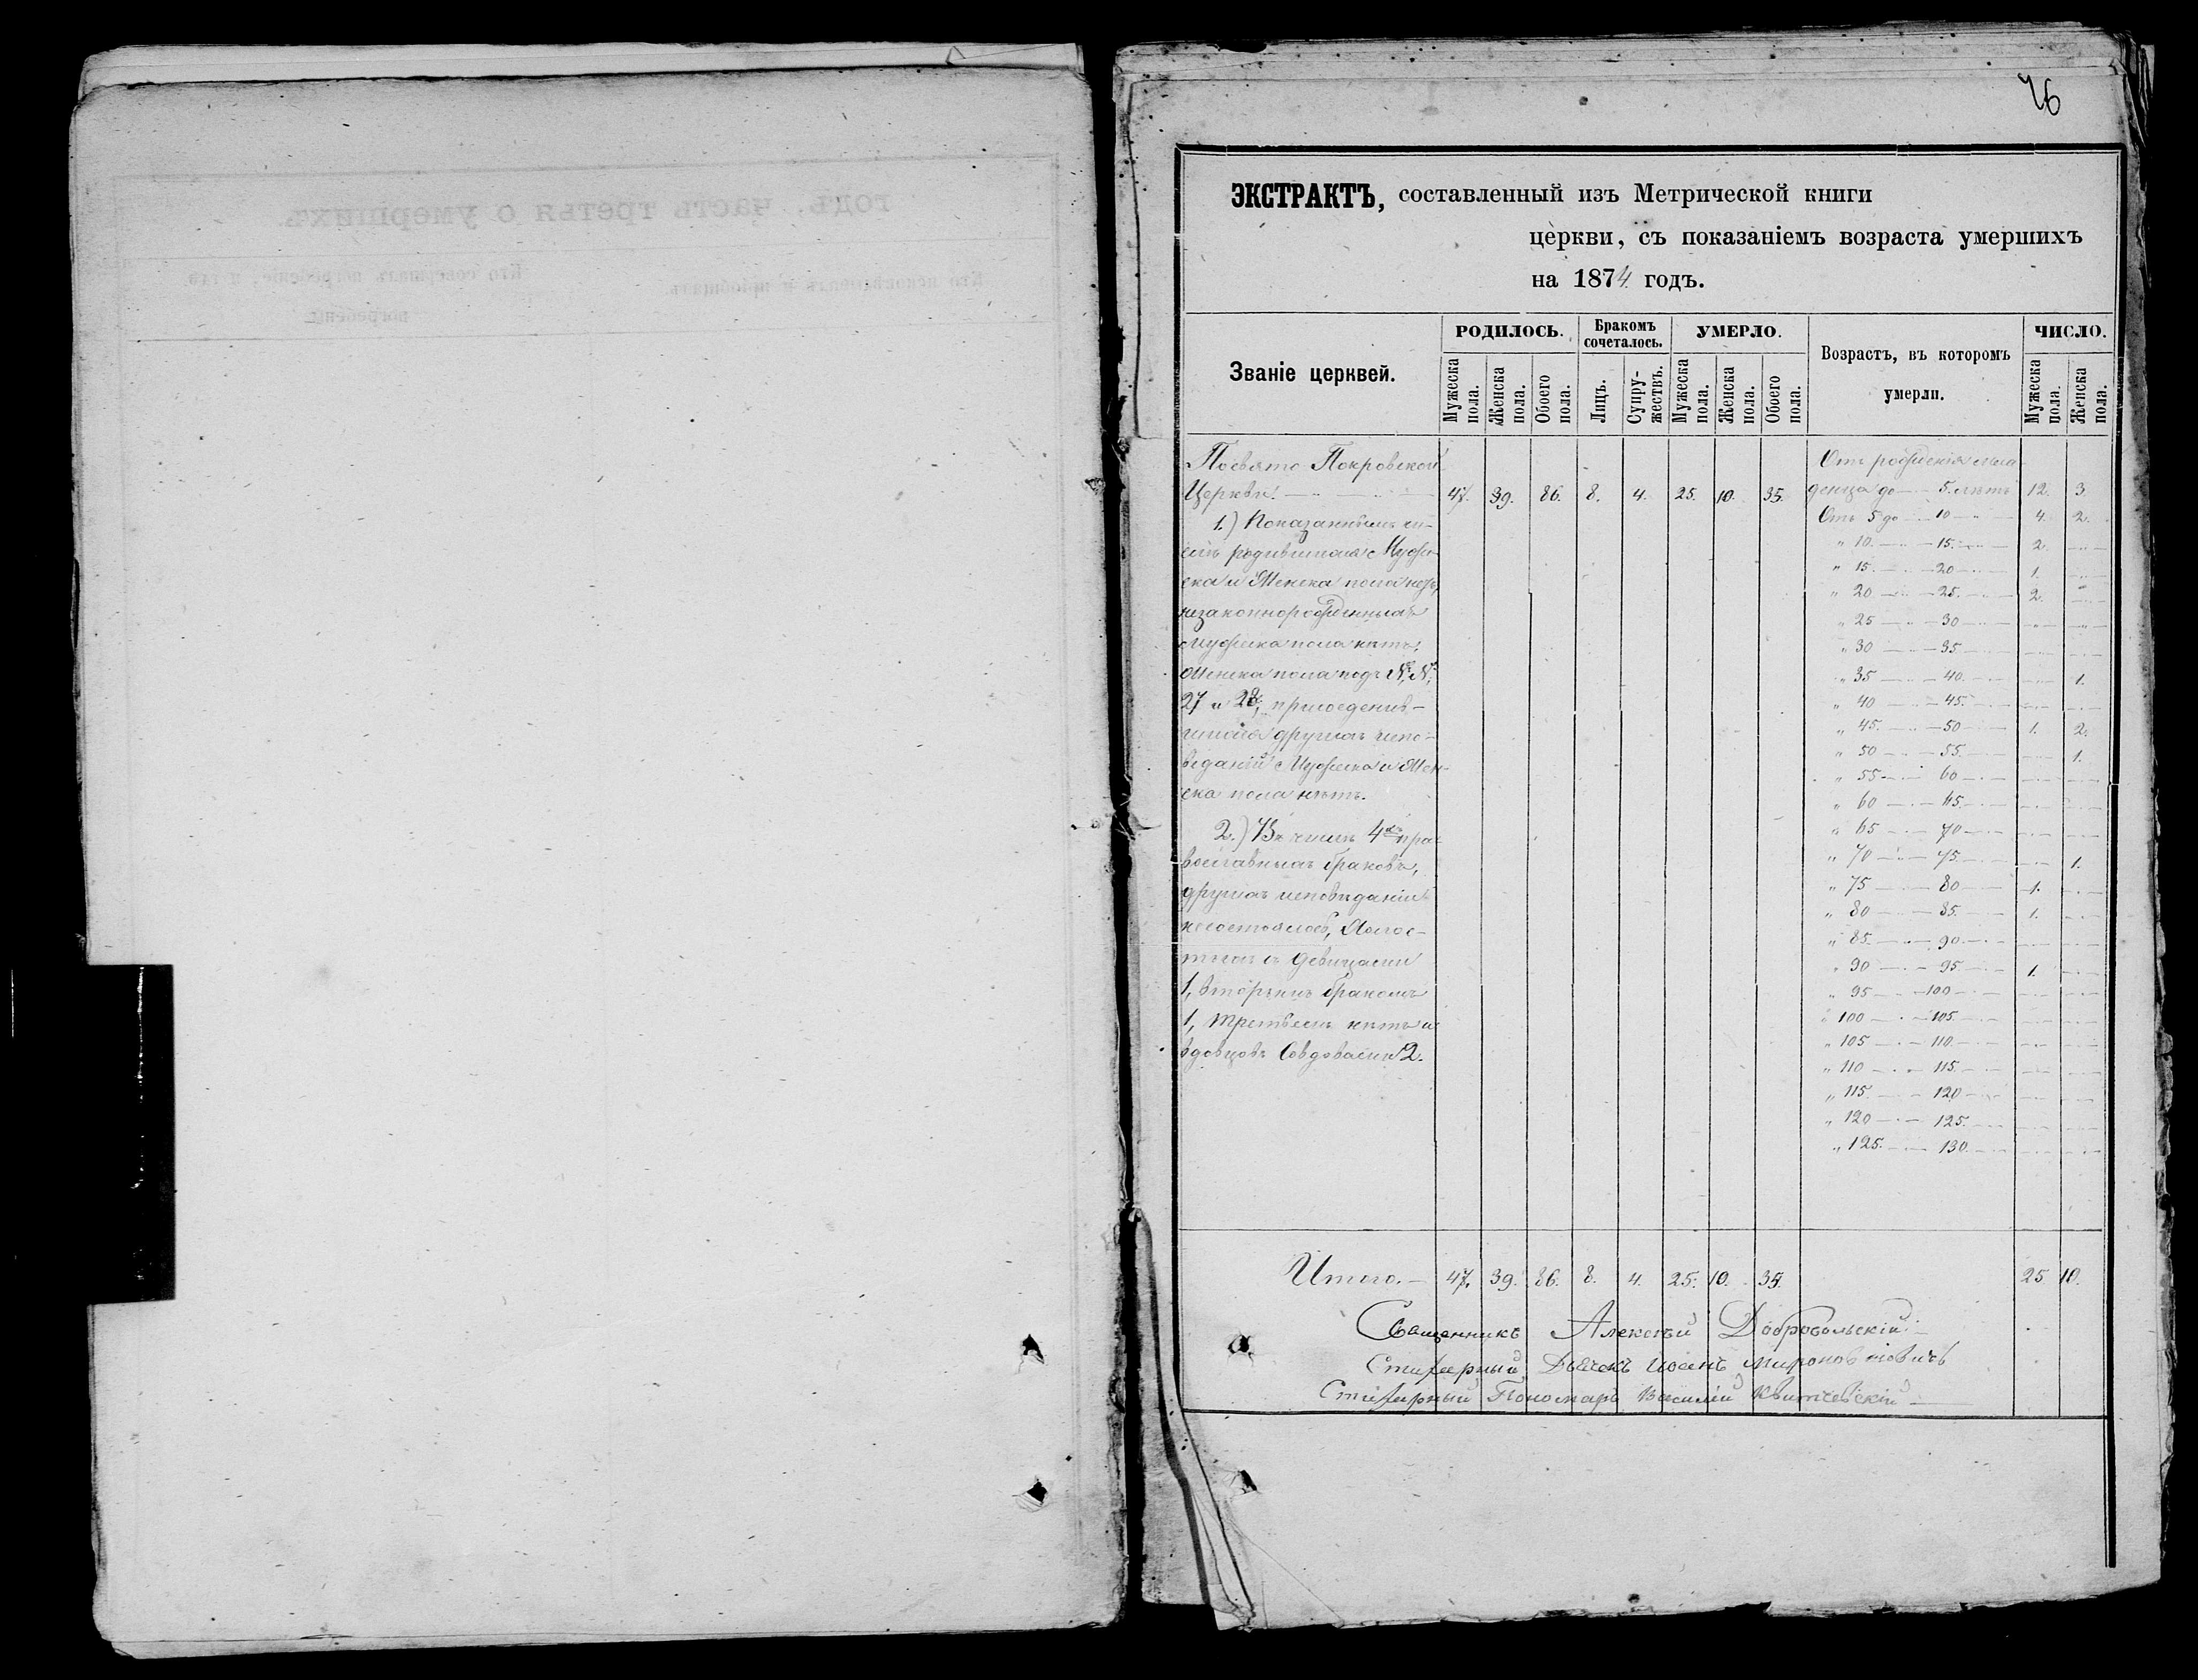 76
ЭКСТРАКТЪ, составленный изъ Метрической книги
церкви, съ показаніемъ возраста умершихъ
на 1874 годъ.
Званіе церквей.
РОДИЛОСЬ.
Мужеска пола.
Женска пола.
Обоего пола.
Бракомъ сочеталось.
Лицъ.
Супружествъ.
УМЕРЛО.
Мужеска пола.
Женска пола.
Обоего пола.
Возрастъ, въ которомъ умерли.
ЧИСЛО.
Мужеска пола
Женска пола.
По свято Покровской
Церкви. 47. 39. 86. 8. 4. 25. 10. 35.
1.) Показаннымъ чи-
родившихся Муже-
ска и Женска пола
незаконнорожденныхъ
Мужеска пола нѣтъ,
Женска пола подъ №, №,
27 и 28, присоединив-
шихся другихъ испо-
вѣданій Мужеска и Жен-
ска пола нѣтъ.
2.) Въ числѣ 4хъ пра-
вославныхъ браковъ,
другихъ исповѣданій
несостоялось, Холос-
тыхъ съ девицами
1, вторымъ бракомъ
1, третьемъ нѣтъ и
вдовцовъ совдовами 2.
Отъ рожденія мла-
денца до 5. лѣтъ 12. 3.
Отъ 5 до 10 4. 2.
" 10. 15. 2.
" 15. 20 1.
" 20 25. 2.
" 25 30
" 30 35.
" 35 40. 1.
" 40 45.
" 45. 50 1. 2.
" 50 55. 1.
" 55 60
" 60 65.
" 65 70
" 70 75. 1.
" 75 80 1.
" 80 85. 1.
" 85. 90
" 90 95. 1.
" 95 100
" 100 105.
" 105 110.
" 110 115.
" 115. 120
" 120 125.
" 125. 130.
Итого. 47. 39. 86. 8. 4. 25. 10. 35. 25 10.
Священникъ Алексѣй Добровольскій
Стихарный Дьячекъ Мироновичъ
Стихарный Пономарь Василій
годъ, часть третья о умершихъ.
Кто исповѣдывалъ и пріобщалъ.
Кто совершалъ погребеніе, и гдѣ
погребены.